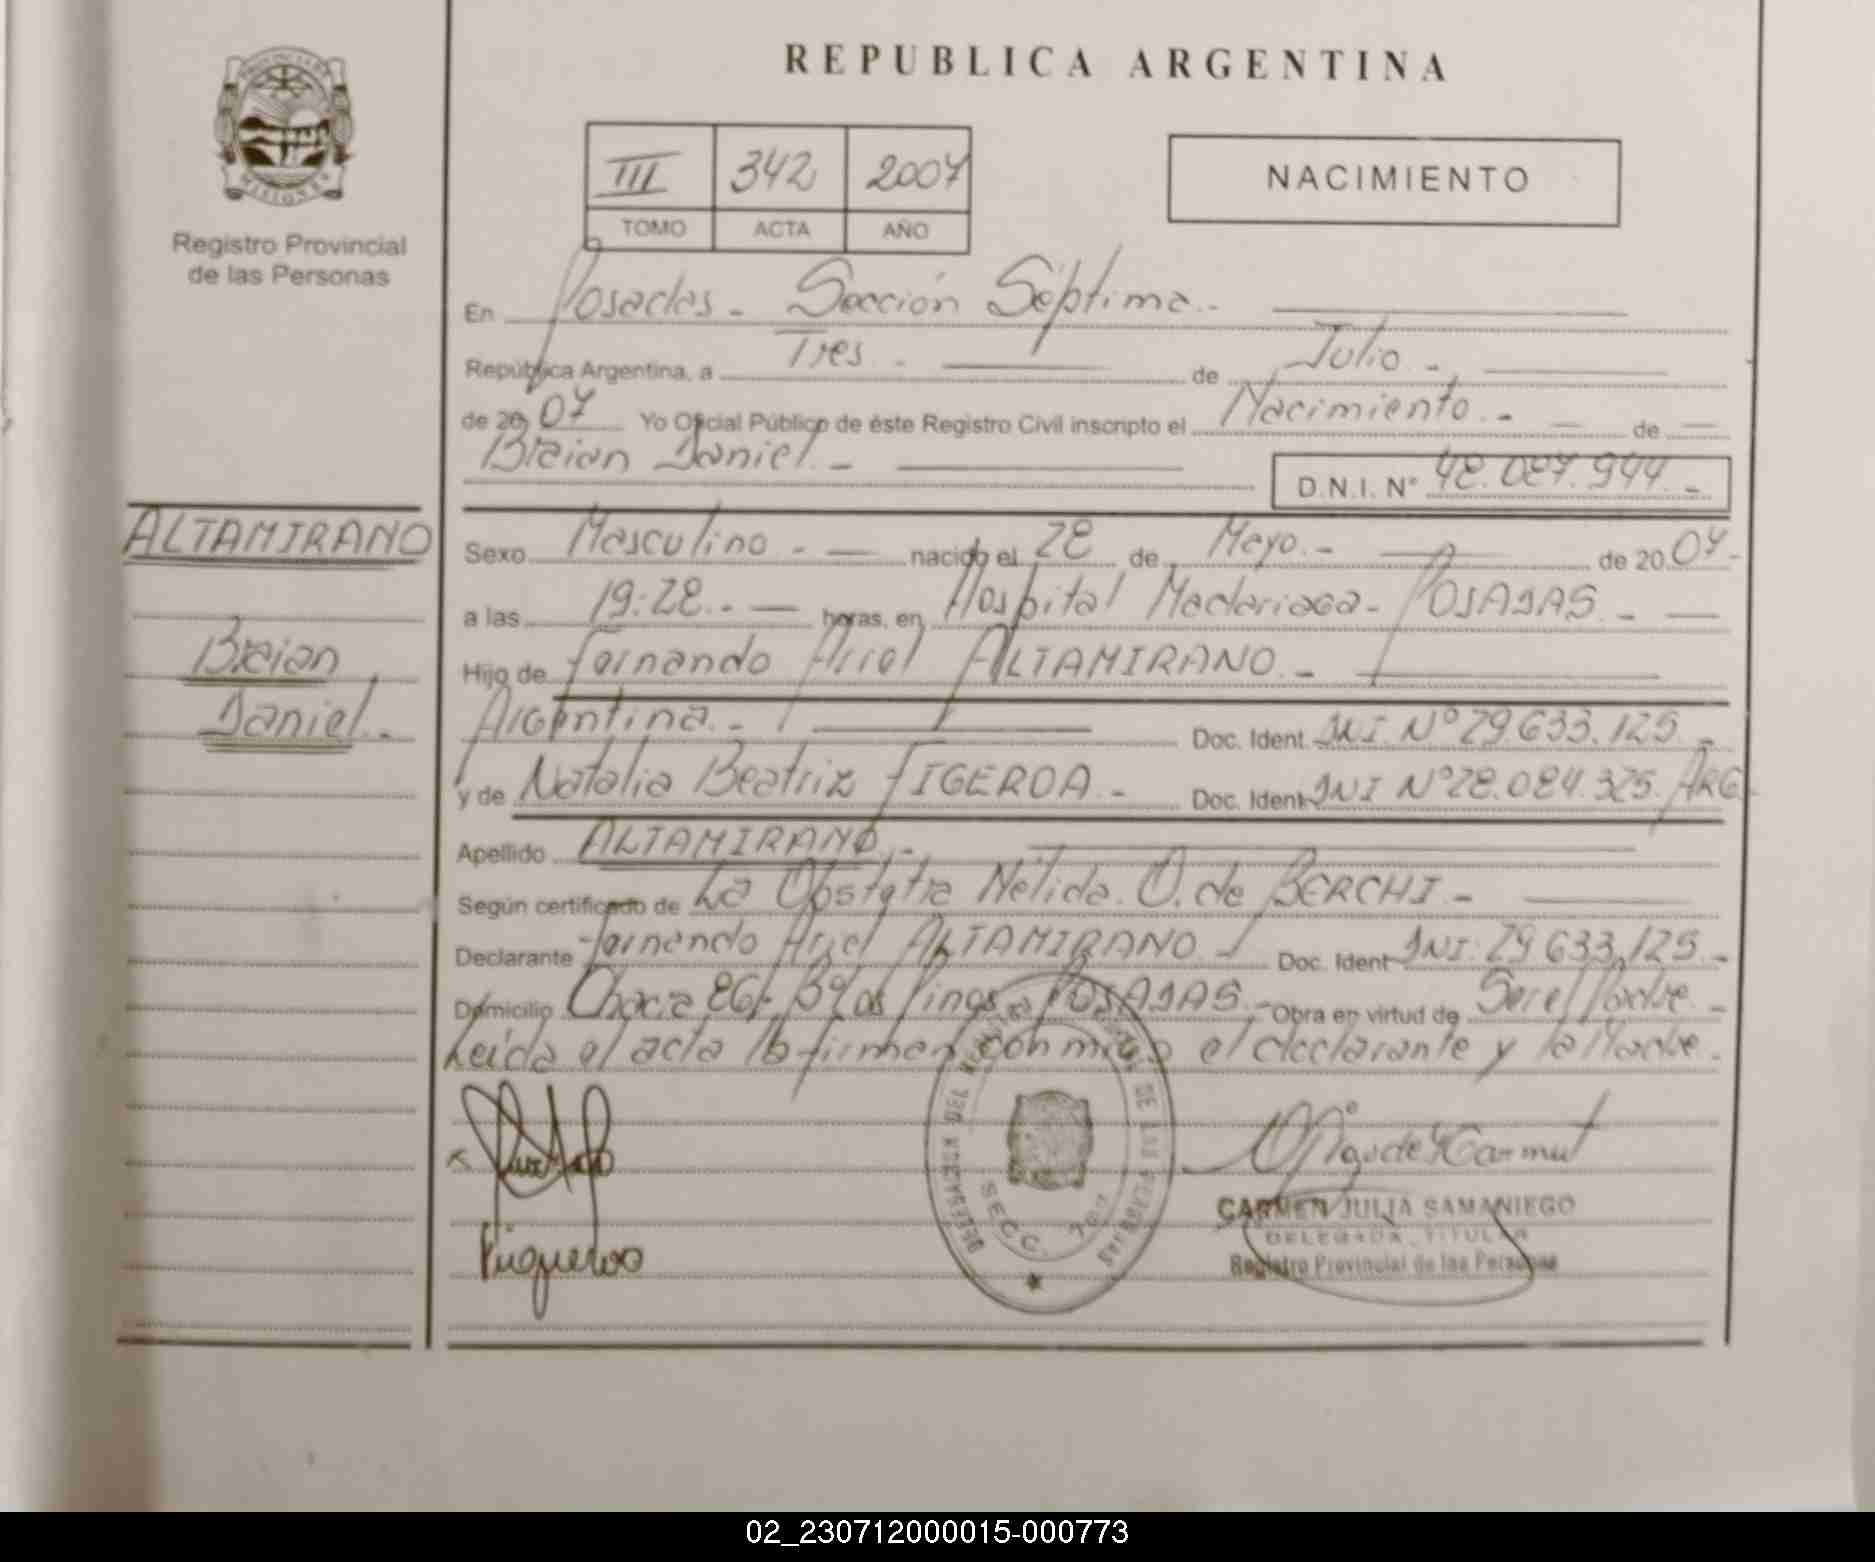 REPUBLICA ARGENTINA
III 342 2007
TOMO ACTA AÑO
NACIMIENTO
Registro Provincial
de las Personas
En Posadas.- Sección Séptima.-
República Argentina, a Tres.- de Julio.-
de 2007 Yo Oficial Público de éste Registro Civil inscripto el Nacimiento.- de
Braian Daniel.-
D.N.I. N° 48.087.944.-
ALTAMIRANO
Braian
Daniel.-
Sexo Masculino.- nacido el 28 de Mayo.- de 2007.-
a las 19:28.- horas, en Hospital Madariaga- POSADAS.-
Hijo de Fernando Ariel ALTAMIRANO.-
Argentina.- Doc. Ident. DNI N° 29.633.125.-
y de Natalia Beatriz FIGEROA.- Doc. Ident. DNI N° 28.084.325. ARG.
Apellido ALTAMIRANO.-
Según certificado de La Obstetra Nélida. O. de BERCHI.-
Declarante Fernando Ariel ALTAMIRANO.- Doc. Ident DNI: 29.633.125.-
Domicilio Chacra 86. B° Los Pinos POSADAS.- Obra en virtud de Ser el Padre.-
Leída el acta la firman conmigo el declarante y la Madre.
DELEGACION DEL REGISTRO DE LAS PERSONAS
SECC. 7
CARMEN JULIA SAMANIEGO
DELEGADA TITULAR
Registro Provincial de las Personas
02_230712000015-000773